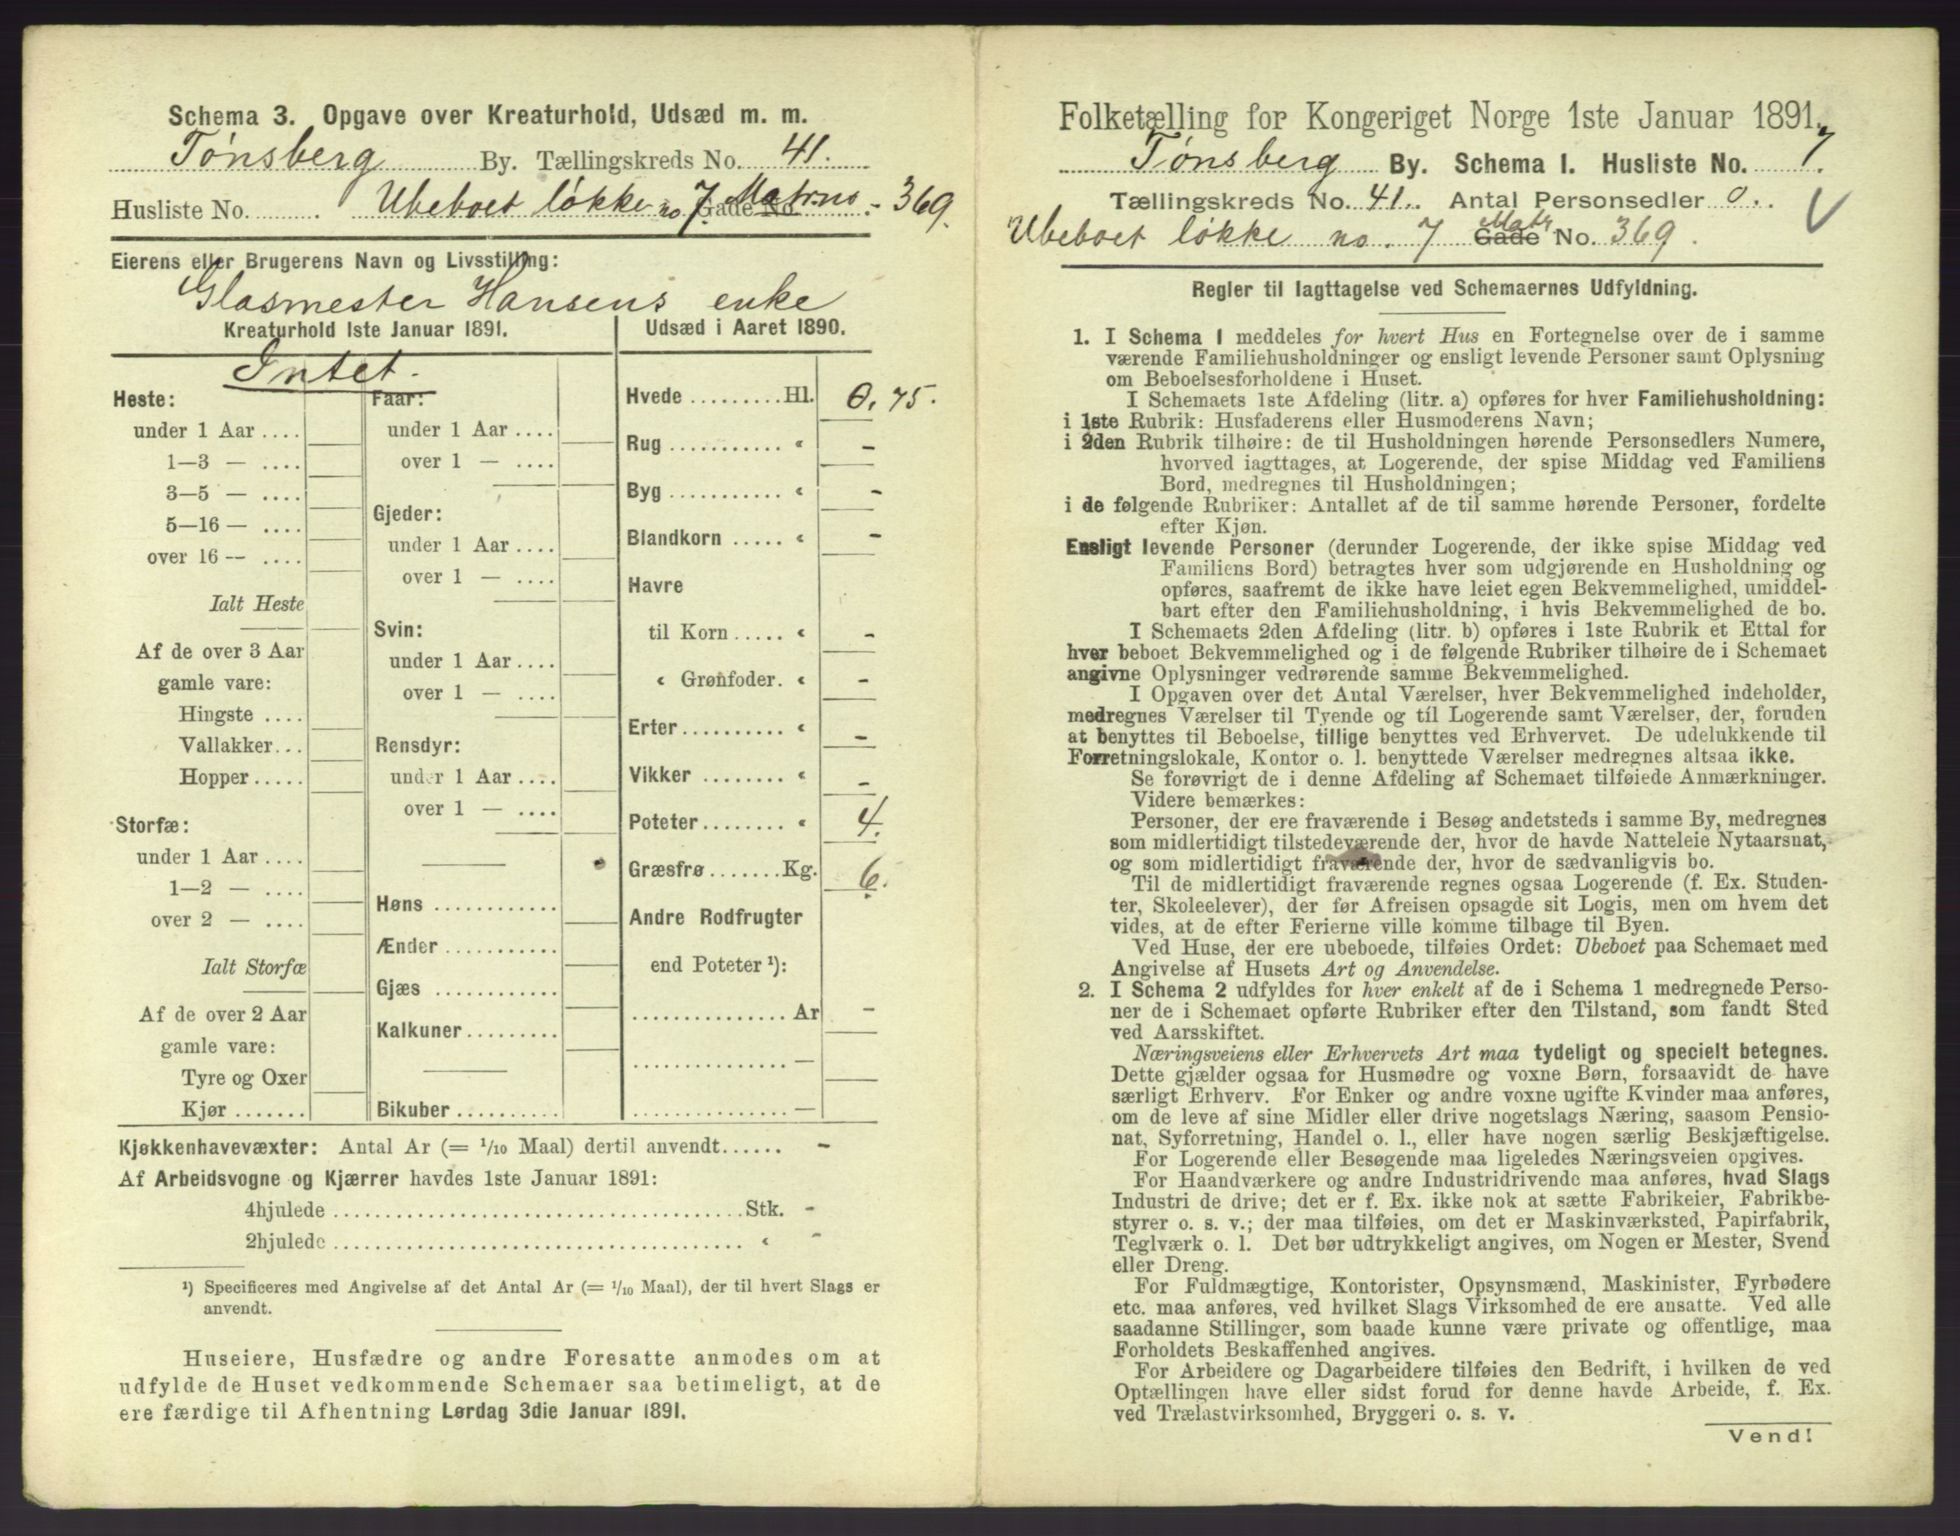 Schema 3. Opgave over Kreaturhold, Udsæd m. m.
Tønsberg By. Tællingskreds No. 41.
Husliste No. Ubeboet løkke no 7. Gade No. Matrno - 369.
Eierens eller Brugerens Navn og Livsstilling:
Glasmester Hansens enke
Kreaturhold 1ste Januar 1891.
Intet.
Heste:
under 1 Aar ....
1—3 — ....
3—5 — ....
5—16 — ....
over 16 — ....
Ialt Heste
Af de over 3 Aar
gamle vare:
Hingste ....
Vallakker...
Hopper .....
Storfæ:
under 1 Aar ....
1—2 — ....
over 2 — ....
Ialt Storfæ
Af de over 2 Aar
gamle vare:
Tyre og Oxer
Kjør .......
Faar:
under 1 Aar ....
over 1 — ....
Gjeder:
under 1 Aar ....
over 1 — ....
Svin:
under 1 Aar ....
over 1 — ....
Rensdyr:
under 1 Aar ....
over 1 — ....
Høns ............
Ænder ...........
Gjæs ............
Kalkuner.........
Bikuber ..........
Udsæd i Aaret 1890.
Hvede .........Hl. 0,75.
Rug ........... « –
Byg ........... « –
Blandkorn ..... « –
Havre
til Korn..... « –
« Grønfoder. « –
Erter.......... « –
Vikker ........ « –
Poteter........ « 4.
Græsfrø .......Kg. 6.
Andre Rodfrugter
end Poteter ¹):
............... Ar –
............... —
............... —
Kjøkkenhavevæxter: Antal Ar (= 1/10 Maal) dertil anvendt...... –
Af Arbeidsvogne og Kjærrer havdes 1ste Januar 1891:
4hjulede .......................................Stk. –
2hjulede ....................................... « –
¹) Specificeres med Angivelse af det Antal Ar (= 1/10 Maal), der til hvert Slags er
anvendt.
Huseiere, Husfædre og andre Foresatte anmodes om at
udfylde de Huset vedkommende Schemaer saa betimeligt, at de
ere færdige til Afhentning Lørdag 3die Januar 1891.
Folketælling for Kongeriget Norge 1ste Januar 1891.
Tønsberg By. Schema 1. Husliste No. 7.
Tællingskreds No. 41. Antal Personsedler 0.
Ubeboet løkke no. 7 Gade Matr No. 369.
Regler til Iagttagelse ved Schemaernes Udfyldning.
1. I Schema 1 meddeles for hvert Hus en Fortegnelse over de i samme
værende Familiehusholdninger og ensligt levende Personer samt Oplysning
om Beboelsesforholdene i Huset.
I Schemaets 1ste Afdeling (litr. a) opføres for hver Familiehusholdning:
i 1ste Rubrik: Husfaderens eller Husmoderens Navn;
i 2den Rubrik tilhøire: de til Husholdningen hørende Personsedlers Numere,
hvorved iagttages, at Logerende, der spise Middag ved Familiens
Bord, medregnes til Husholdningen;
i de følgende Rubriker: Antallet af de til samme hørende Personer, fordelte
efter Kjøn.
Ensligt levende Personer (derunder Logerende, der ikke spise Middag ved
Familiens Bord) betragtes hver som udgjørende en Husholdning og
opføres, saafremt de ikke have leiet egen Bekvemmelighed, umiddel-
bart efter den Familiehusholdning, i hvis Bekvemmelighed de bo.
I Schemaets 2den Afdeling (litr. b) opføres i 1ste Rubrik et Ettal for
hver beboet Bekvemmelighed og i de følgende Rubriker tilhøire de i Schemaet
angivne Oplysninger vedrørende samme Bekvemmelighed.
I Opgaven over det Antal Værelser, hver Bekvemmelighed indeholder,
medregnes Værelser til Tyende og til Logerende samt Værelser, der, foruden
at benyttes til Beboelse, tillige benyttes ved Erhvervet. De udelukkende til
Forretningslokale, Kontor o. l. benyttede Værelser medregnes altsaa ikke.
Se forøvrigt de i denne Afdeling af Schemaet tilføiede Anmærkninger.
Videre bemærkes:
Personer, der ere fraværende i Besøg andetsteds i samme By, medregnes
som midlertidigt tilstedeværende der, hvor de havde Natteleie Nytaarsnat,
og som midlertidigt fraværende der, hvor de sædvanligvis bo.
Til de midlertidigt fraværende regnes ogsaa Logerende (f. Ex. Studen-
ter, Skoleelever), der før Afreisen opsagde sit Logis, men om hvem det
vides, at de efter Ferierne ville komme tilbage til Byen.
Ved Huse, der ere ubeboede, tilføies Ordet: Ubeboet paa Schemaet med
Angivelse af Husets Art og Anvendelse.
2. I Schema 2 udfyldes for hver enkelt af de i Schema 1 medregnede Perso-
ner de i Schemaet opførte Rubriker efter den Tilstand, som fandt Sted
ved Aarsskiftet.
Næringsveiens eller Erhvervets Art maa tydeligt og specielt betegnes.
Dette gjælder ogsaa for Husmødre og voxne Børn, forsaavidt de have
særligt Erhverv. For Enker og andre voxne ugifte Kvinder maa anføres,
om de leve af sine Midler eller drive nogetslags Næring, saasom Pensio-
nat, Syforretning, Handel o. l., eller have nogen særlig Beskjæftigelse.
For Logerende eller Besøgende maa ligeledes Næringsveien opgives.
For Haandværkere og andre Industridrivende maa anføres, hvad Slags
Industri de drive; det er f. Ex. ikke nok at sætte Fabrikeier, Fabrikbe-
styrer o. s. v.; der maa tilføies, om det er Maskinværksted, Papirfabrik,
Teglværk o. l. Det bør udtrykkeligt angives, om Nogen er Mester, Svend
eller Dreng.
For Fuldmægtige, Kontorister, Opsynsmænd, Maskinister, Fyrbødere
etc. maa anføres, ved hvilket Slags Virksomhed de ere ansatte. Ved alle
saadanne Stillinger, som baade kunne være private og offentlige, maa
Forholdets Beskaffenhed angives.
For Arbeidere og Dagarbeidere tilføies den Bedrift, i hvilken de ved
Optællingen have eller sidst forud for denne havde Arbeide, f. Ex.
ved Trælastvirksomhed, Bryggeri o. s. v.
Vend!